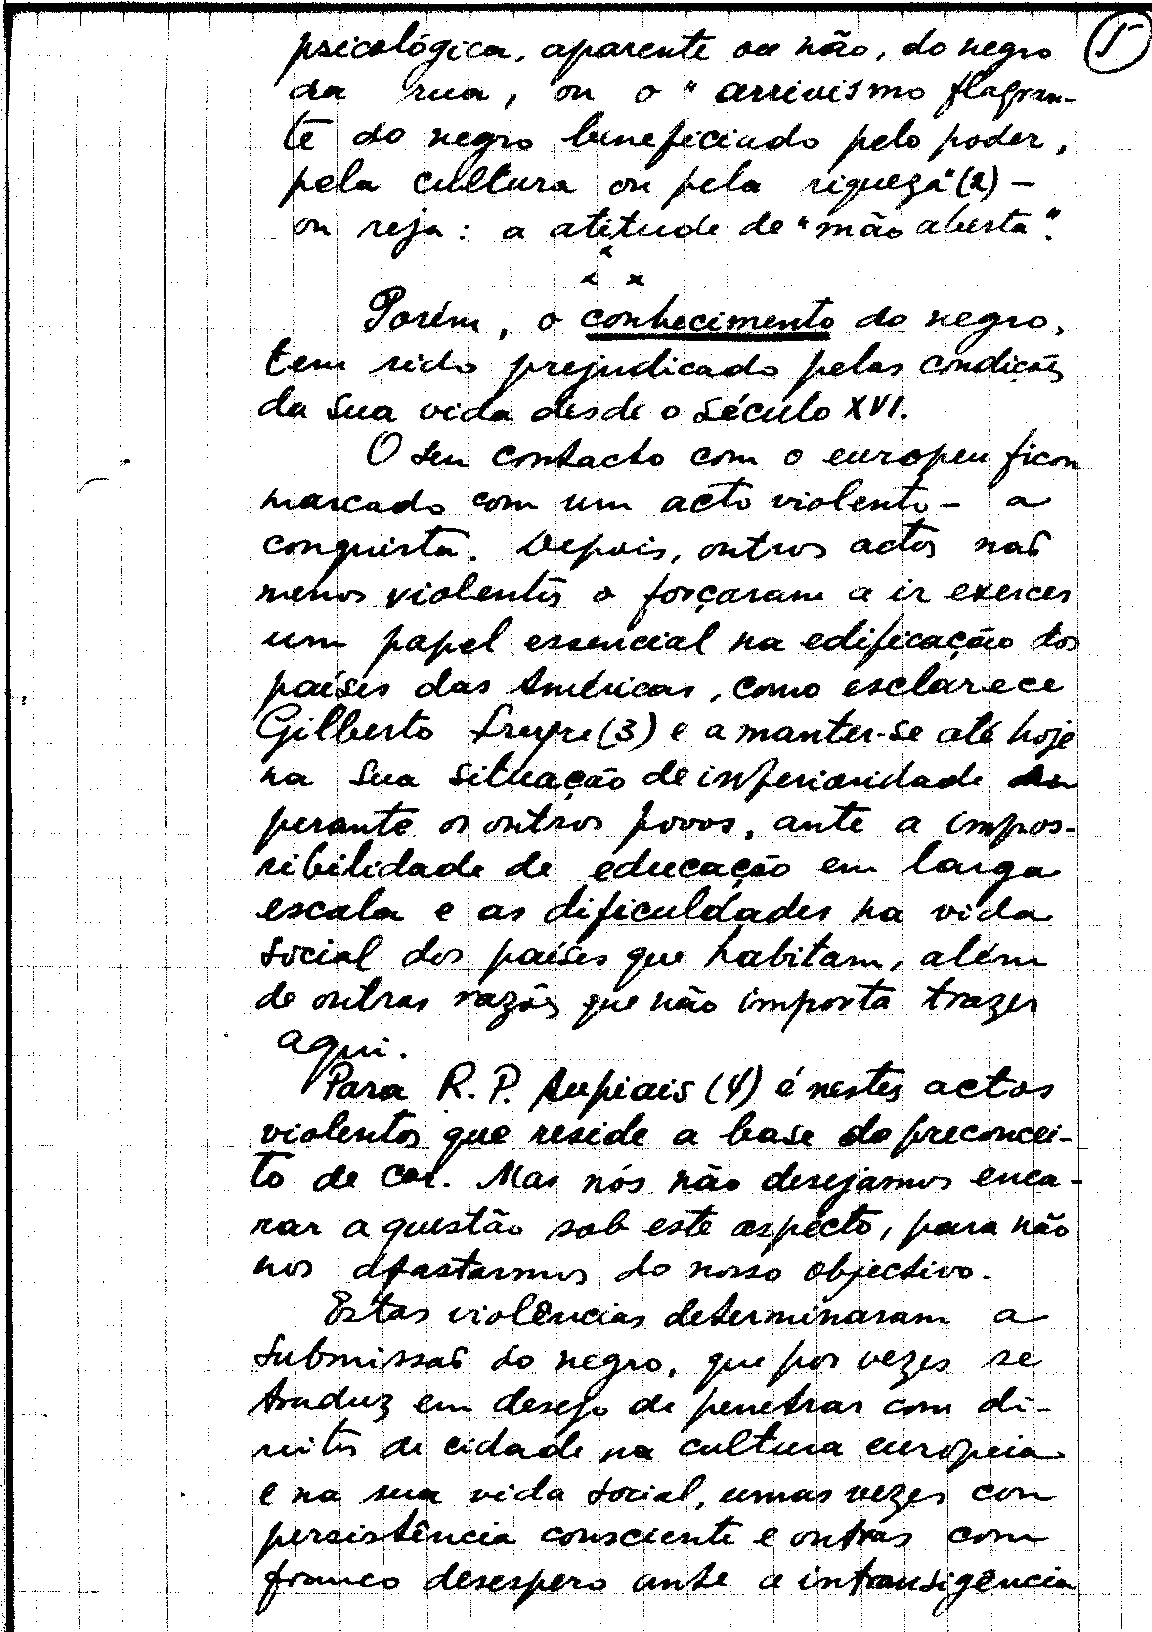 5
psicológica, aparente ou não, do negro
da rua, ou o "arrivismo flagran-
te do negro beneficiado pelo poder,
pela cultura ou pela riqueza" (2) —
ou seja: a atitude de "mão aberta".
x
x x
Porém, o conhecimento do negro,
tem sido prejudicado pelas condições
da sua vida desde o século XVI.
O seu contacto com o europeu ficou
marcado com um acto violento — a
conquista. Depois, outros actos não
menos violentos o forçaram a ir exercer
um papel essencial na edificação dos
países das Américas, como esclarece
Gilberto Freyre (3) e a manter-se até hoje
na sua situação de inferioridade
perante os outros povos, ante a impos-
sibilidade de educação em larga
escala e as dificuldades na vida
social dos países que habitam, além
de outras razões que não importa trazer
aqui.
Para R. P. Aupiais (4) é nestes actos
violentos que reside a base do preconcei-
to de cor. Mas nós não desejamos enca-
rar a questão sob este aspecto, para não
nos afastarmos do nosso objectivo.
Estas violências determinaram a
submissão do negro, que por vezes se
traduz em desejo de penetrar com di-
reitos de cidade na cultura europeia
e na sua vida social, umas vezes com
persistência consciente e outras com
franco desespero ante a intransigência